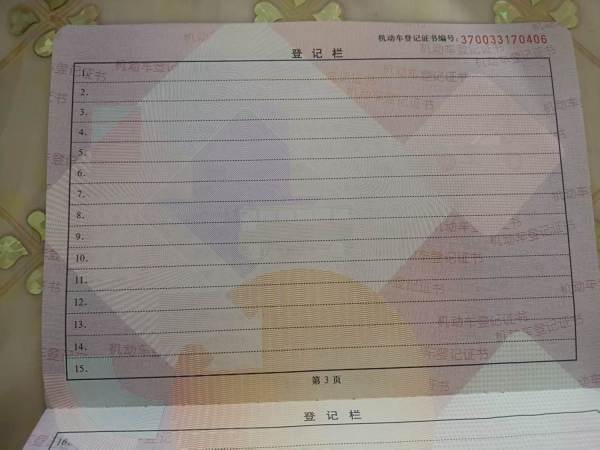 机动车登记证书编号：370033170406
登记栏
1.
2.
3.
4.
5.
6.
7.
8.
9.
10.
11.
12.
13.
14.
15.
第 3 页
登记栏
16.